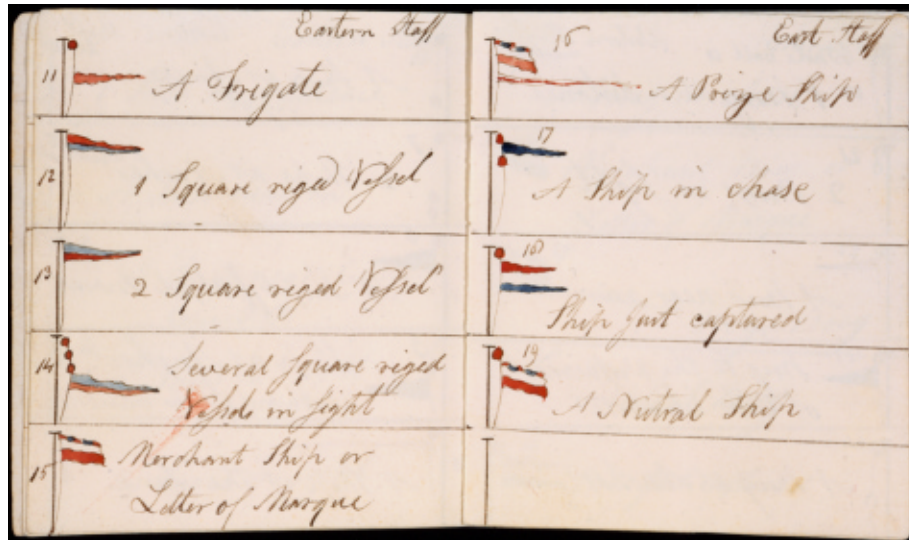 Eastern Staff
11 A Frigate
12 1 Square riged Vessel
13 2 Square riged Vessel
14 Several Square riged
Vessels in Sight
15 Merchant Ship or
Letter of Marque
East Staff
16 A Prize Ship
17 A Ship in chase
18 Ship Just captured
19 A Nutral Ship